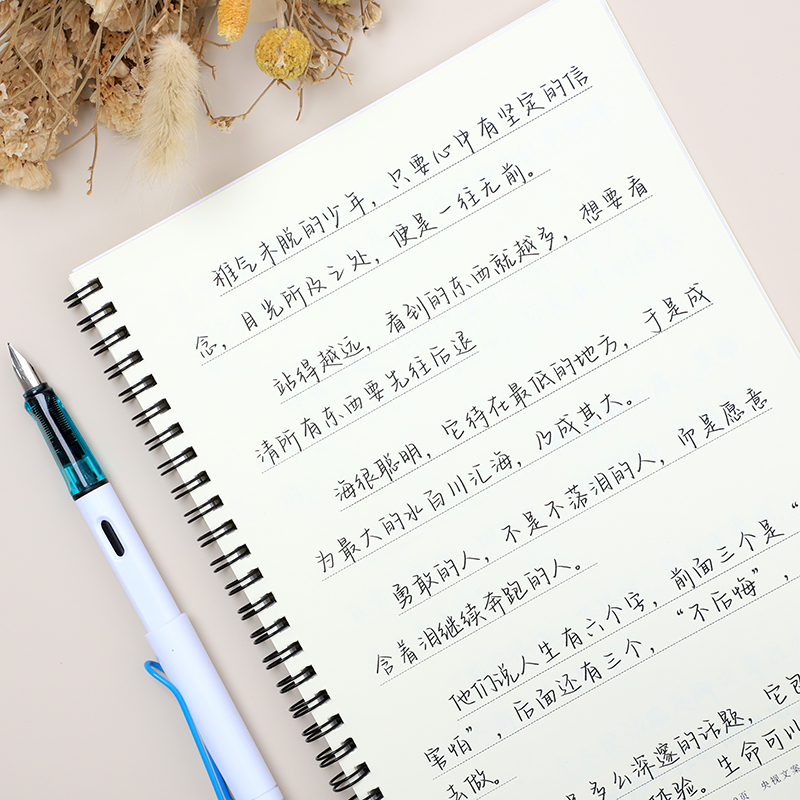 稚气未脱的少年，只要心中有坚定的信
念，目光所及之处，便是一往无前。
站得越远，看到的东西就越多，想要看
清所有东西要先往后退
海很聪明，它待在最低的地方，于是成
为最大的水百川汇海，乃成其大。
勇敢的人，不是不落泪的人，而是愿意
含着泪继续奔跑的人。
他们说人生有六个字，前面三个是“
害怕”，后面还有三个，“不后悔”，
去做。
是多么深邃的话题，它包
体验。生命可以
页 央视文案